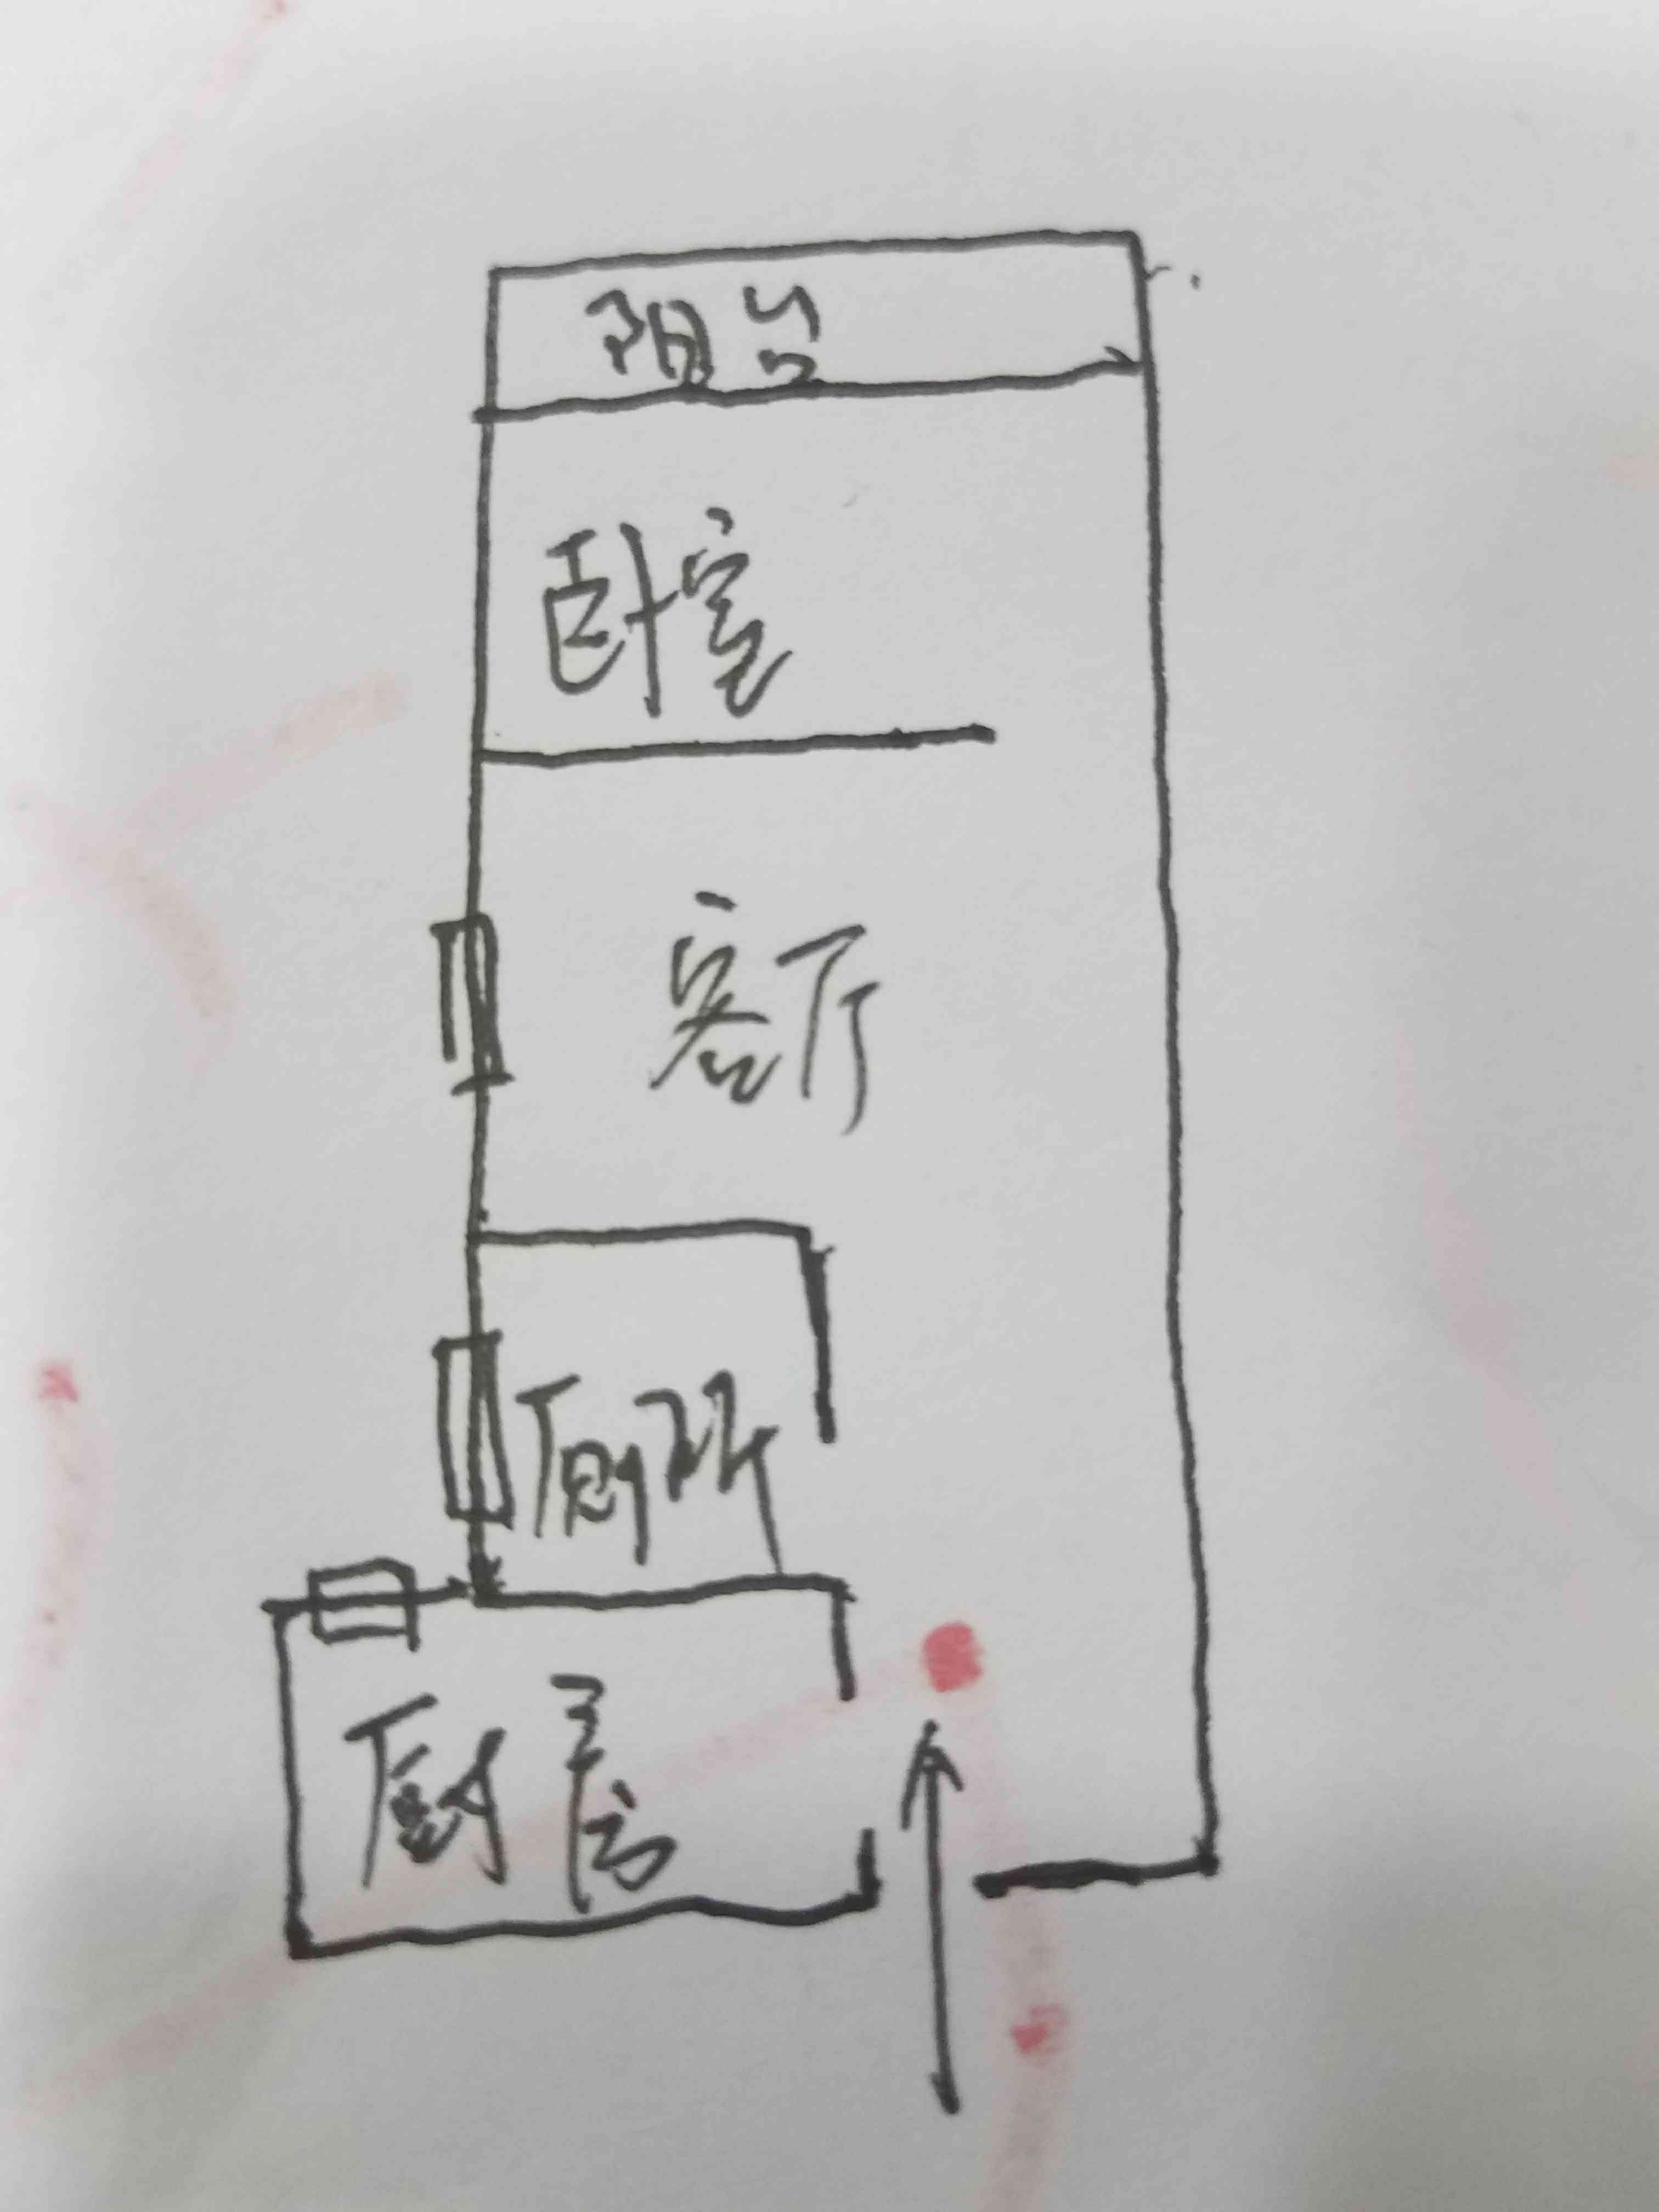 阳台
卧室
客厅
厕所
厨房